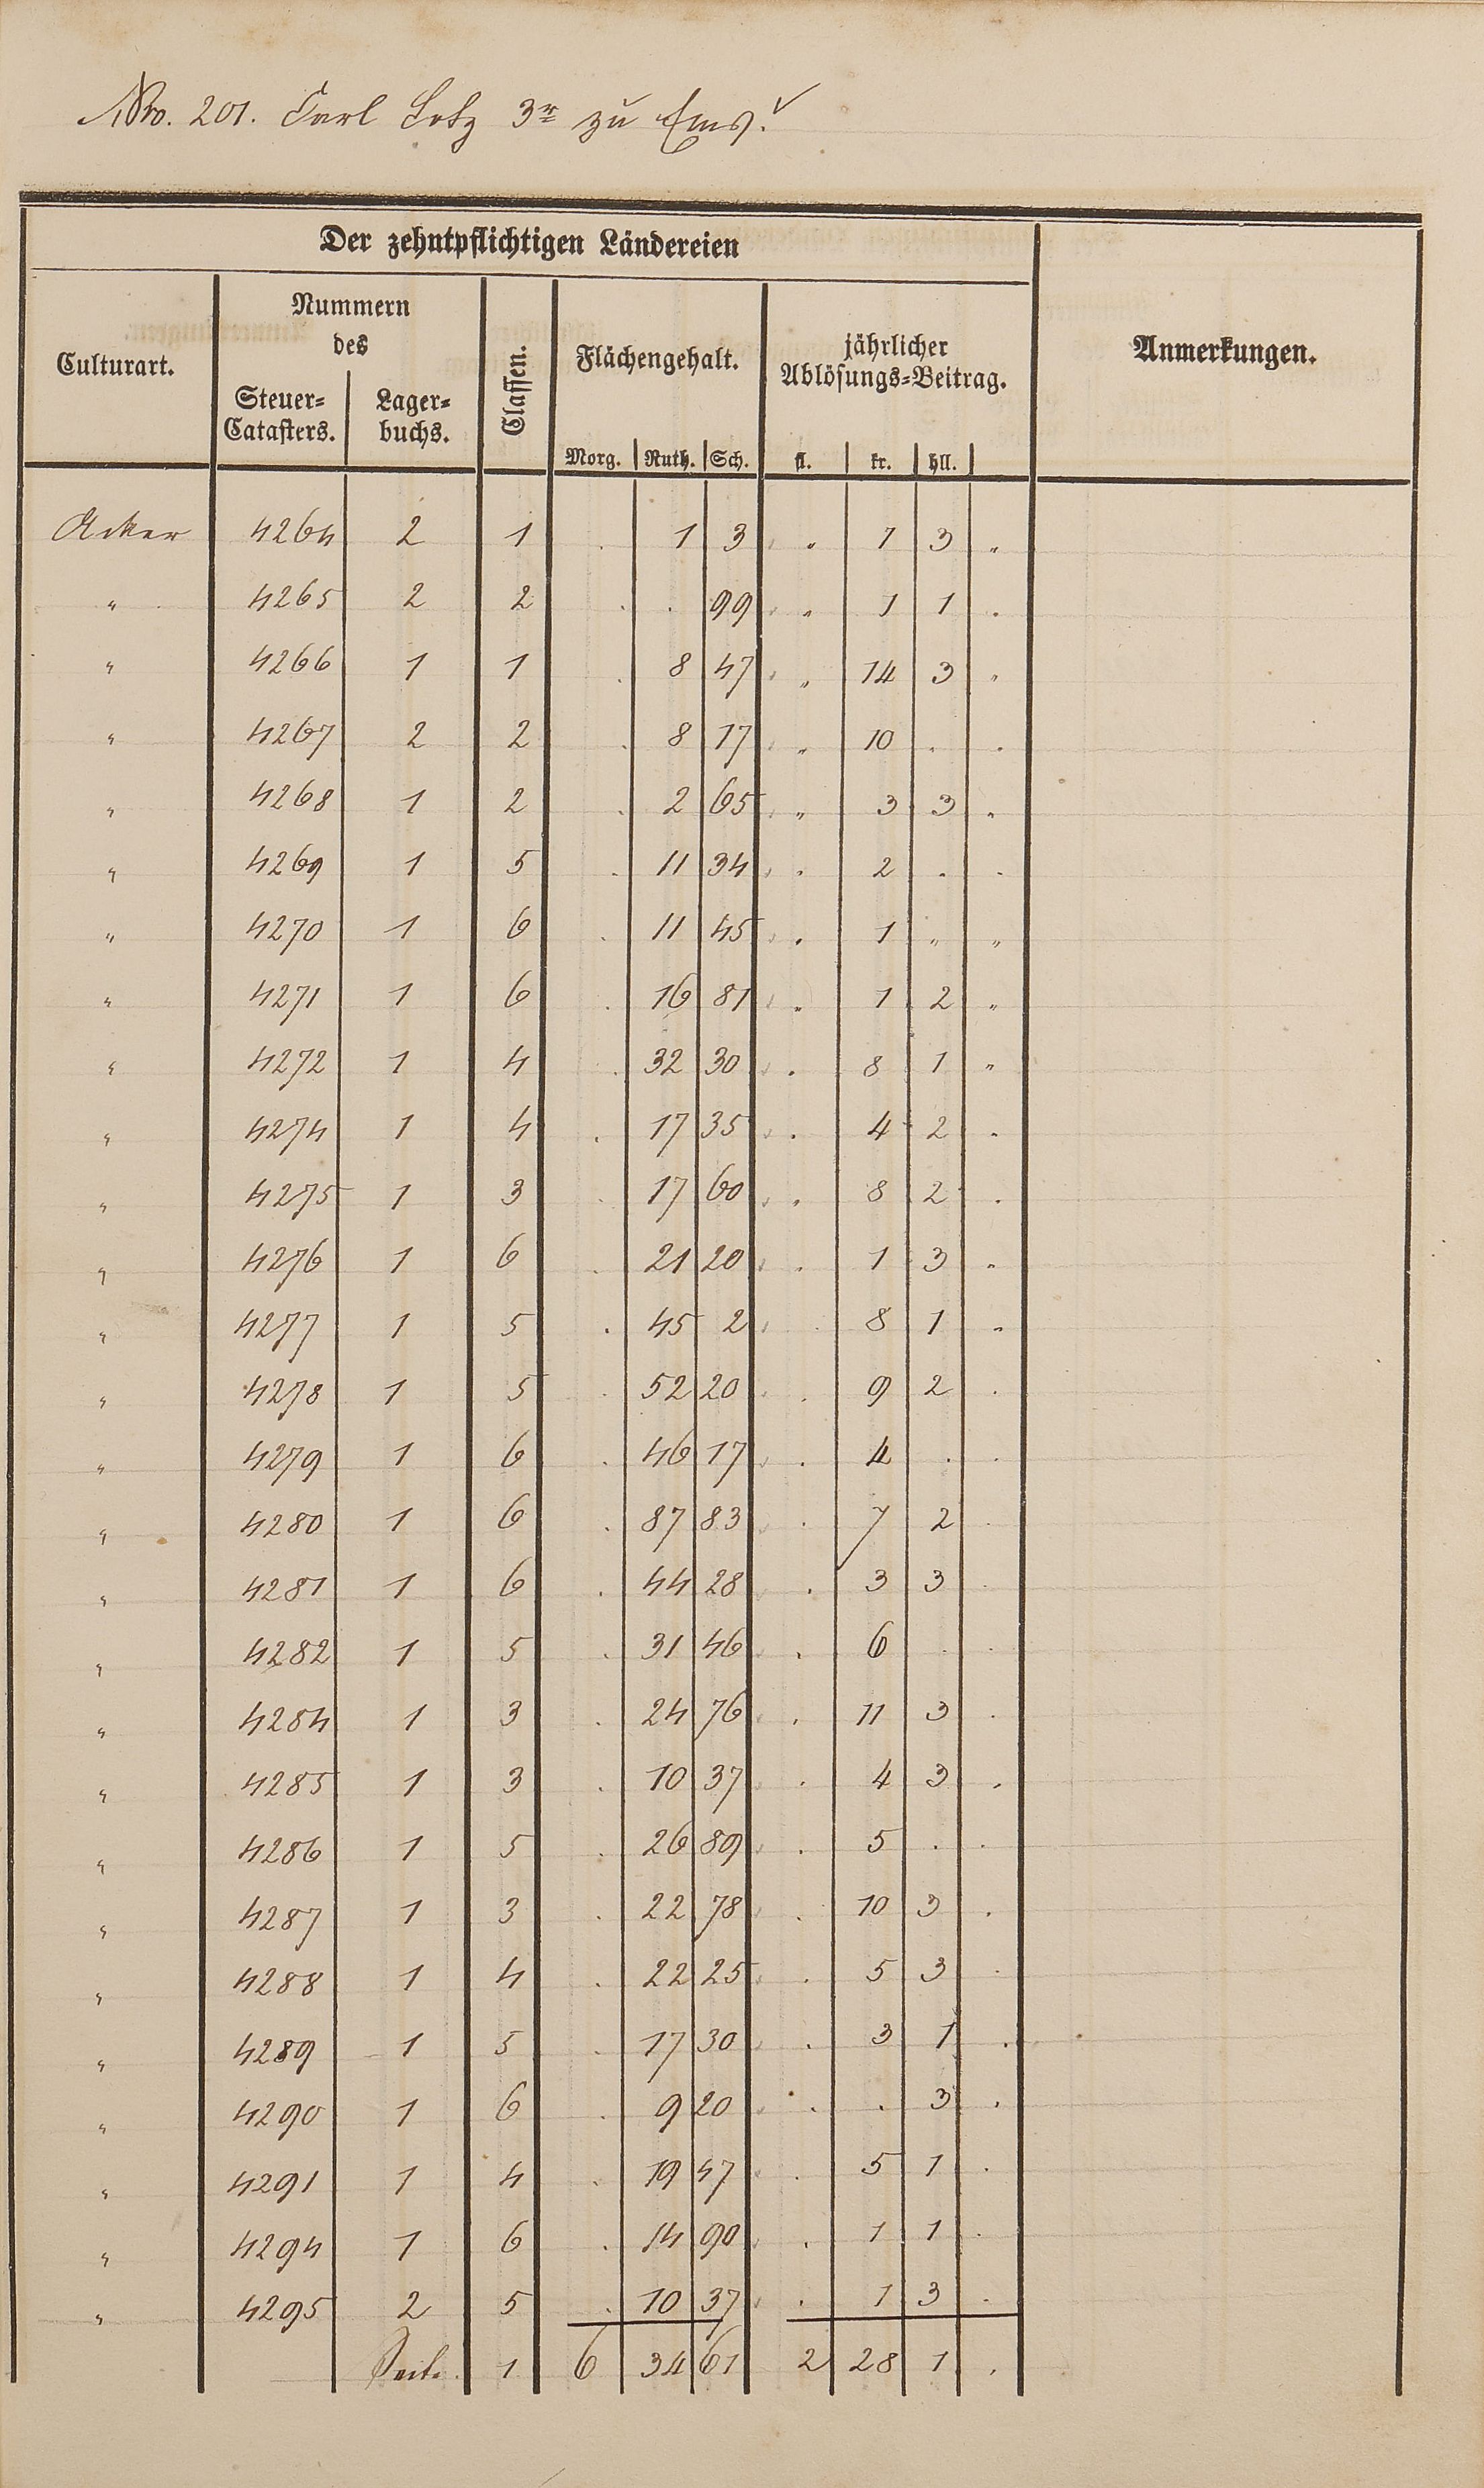 Nro. 201. Carl Lotz 3r zu Ems.
Der zehntpflichtigen Ländereien
Culturart. Nummern des Steuer=Catasters. Lager=buchs. Classen. Flächengehalt. Morg. Ruth. Sch. jährlicher Ablösungs=Beitrag. fl. kr. hll. Anmerkungen.
Acker 4264 2 1 . 1 3 „ 1 3 „
„ 4265 2 2 . . 99 „ 1 1 .
„ 4266 1 1 . 8 47 „ 14 3 „
„ 4267 2 2 . 8 17 „ 10 . .
„ 4268 1 2 . 2 65 „ 3 3 .
„ 4269 1 5 . 11 34 . 2 . .
„ 4270 1 6 . 11 45 . 1 „ „
„ 4271 1 6 . 16 81 „ 1 2 „
„ 4272 1 4 . 32 30 . 8 1 „
„ 4274 1 4 . 17 35 . 4 2 .
„ 4275 1 3 . 17 60 . 8 2 .
„ 4276 1 6 . 21 20 . 1 3 .
„ 4277 1 5 . 45 2 . 8 1 .
„ 4278 1 5 . 52 20 . 9 2 .
„ 4279 1 6 . 46 17 . 4 . .
„ 4280 1 6 . 87 83 . 7 2 .
„ 4281 1 6 . 44 28 . 3 3 .
„ 4282 1 5 . 31 46 . 6 . .
„ 4284 1 3 . 24 76 . 11 3 .
„ 4285 1 3 . 10 37 . 4 3 .
„ 4286 1 5 . 26 89 . 5 . .
„ 4287 1 3 . 22 78 . 10 3 .
„ 4288 1 4 . 22 25 . 5 3 .
„ 4289 1 5 . 17 30 . 3 1 .
„ 4290 1 6 . 9 20 . . 3 .
„ 4291 1 4 . 19 47 . 5 1 .
„ 4294 1 6 . 14 90 . 1 1 .
„ 4295 2 5 . 10 37 . 1 3 .
Seite 1 6 34 61 2 28 1 .